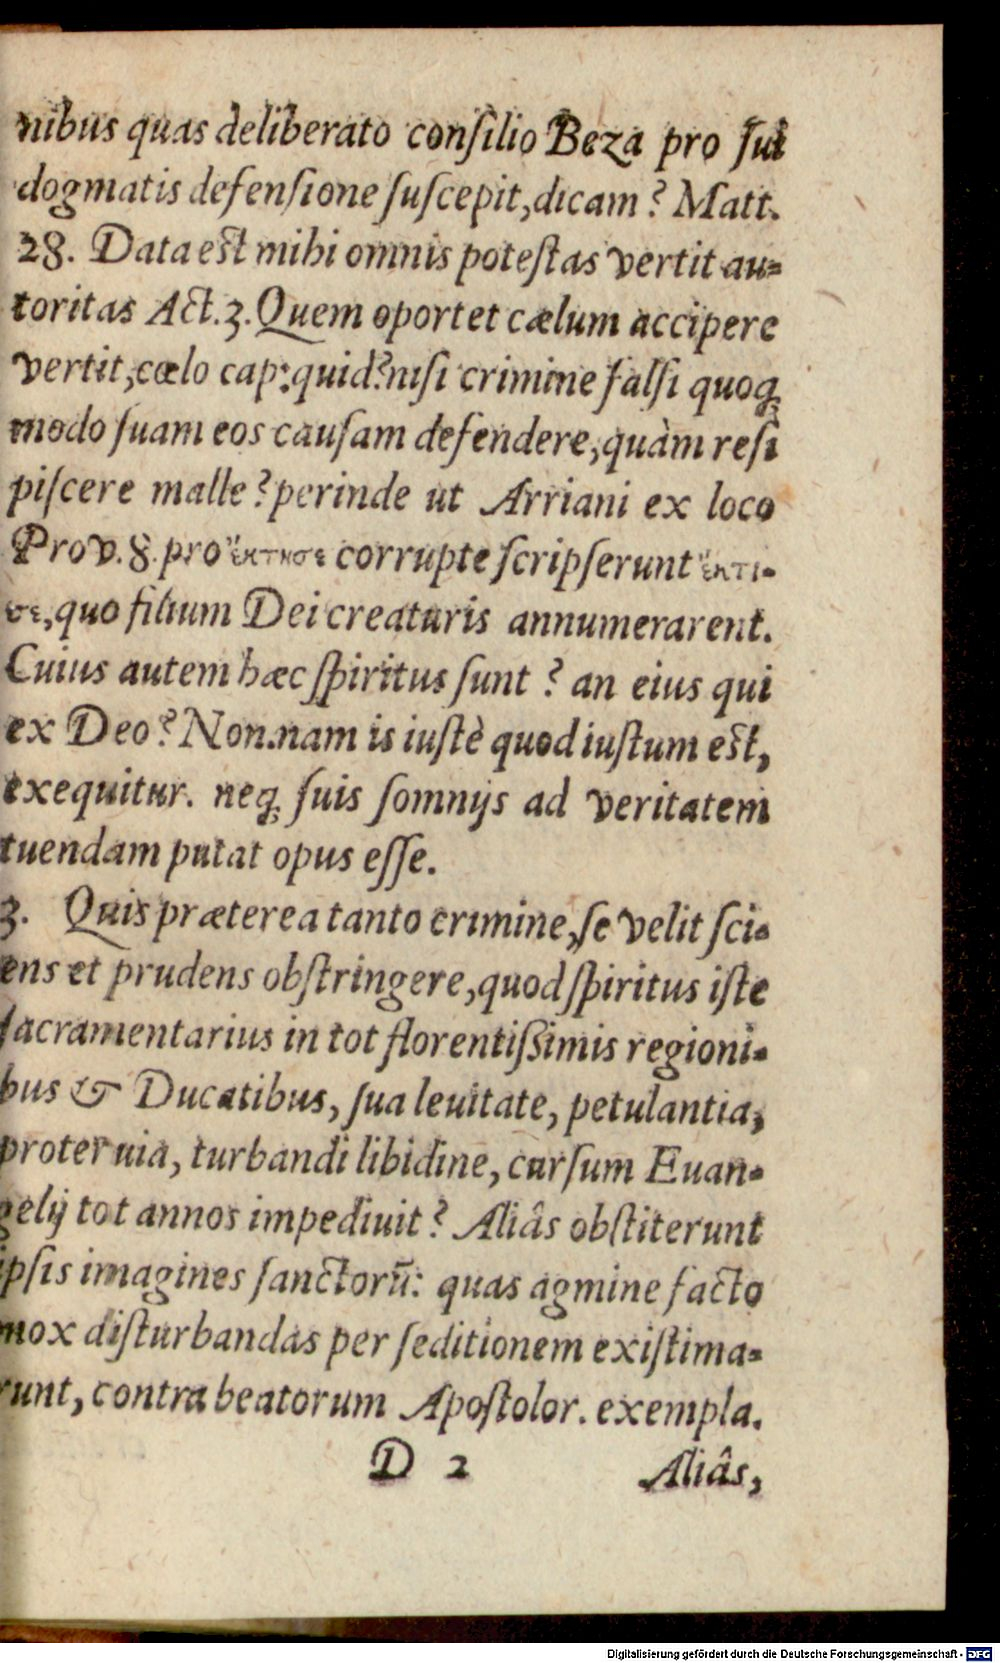 nibus quas deliberato consilio Beza pro sui
dogmatis defensione suscepit, dicam? Matt.
28. Data est mihi omnis potestas vertit au=
toritas Act. 3. Quem oportet cælum accipere
vertit, cœlo cap: quid? nisi crimine falsi quoq;
modo suam eos causam defendere, quàm resi
piscere malle? perinde ut Arriani ex loco
Prov. 8. pro ἔκτησε corrupte scripserunt ἔκτι-
σε, quo filium Dei creaturis annumerarent.
Cuius autem hæc spiritus sunt? an eius qui
ex Deo? Non. nam is iustè quod iustum est,
exequitur. neq; suis somnijs ad veritatem
tuendam putat opus esse.
3. Quis præterea tanto crimine, se velit sci=
ens et prudens obstringere, quod spiritus iste
sacramentarius in tot florentißimis regioni=
bus & Ducatibus, sua leuitate, petulantia,
proteruia, turbandi libidine, cursum Euan=
gelij tot annos impediuit? Aliâs obstiterunt
ipsis imagines sanctorũ: quas agmine facto
mox disturbandas per seditionem existima=
runt, contra beatorum Apostolor. exempla.
D 2 Aliâs,
Digitalisierung gefördert durch die Deutsche Forschungsgemeinschaft - DFG